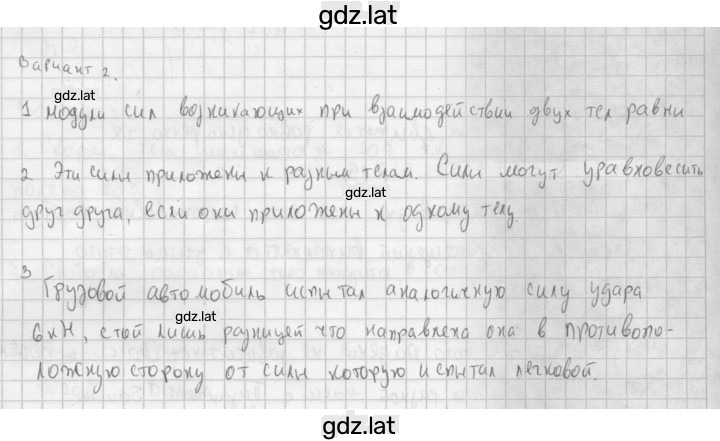 gdz.lat
Вариант 2.
gdz.lat
1 Модули сил возникающих при взаимодействии двух тел равни
2 Эти сили приложени к разным телам. Сили могут уравновесить
gdz.lat
друг друга, если они приложены к одному телу.
3
Грузовой автомобиль испытал аналогичную силу удара
gdz.lat
6кН, стой лишь разницей что направлена она в противопо-
ложную сторону от сили которую испытал легковой.
gdz.lat